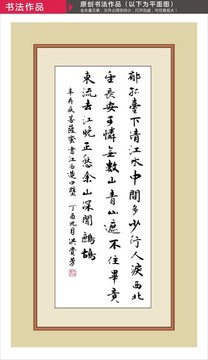 书法作品
原创书法作品（以下为平面图）
郁孤臺下清江水中間多少行人淚西北
望長安可憐無數山青山遮不住畢竟
東流去江晚正愁余山深聞鷓鴣
辛弃疾菩薩蛮書江西造口壁 丁酉九月洪貴芳